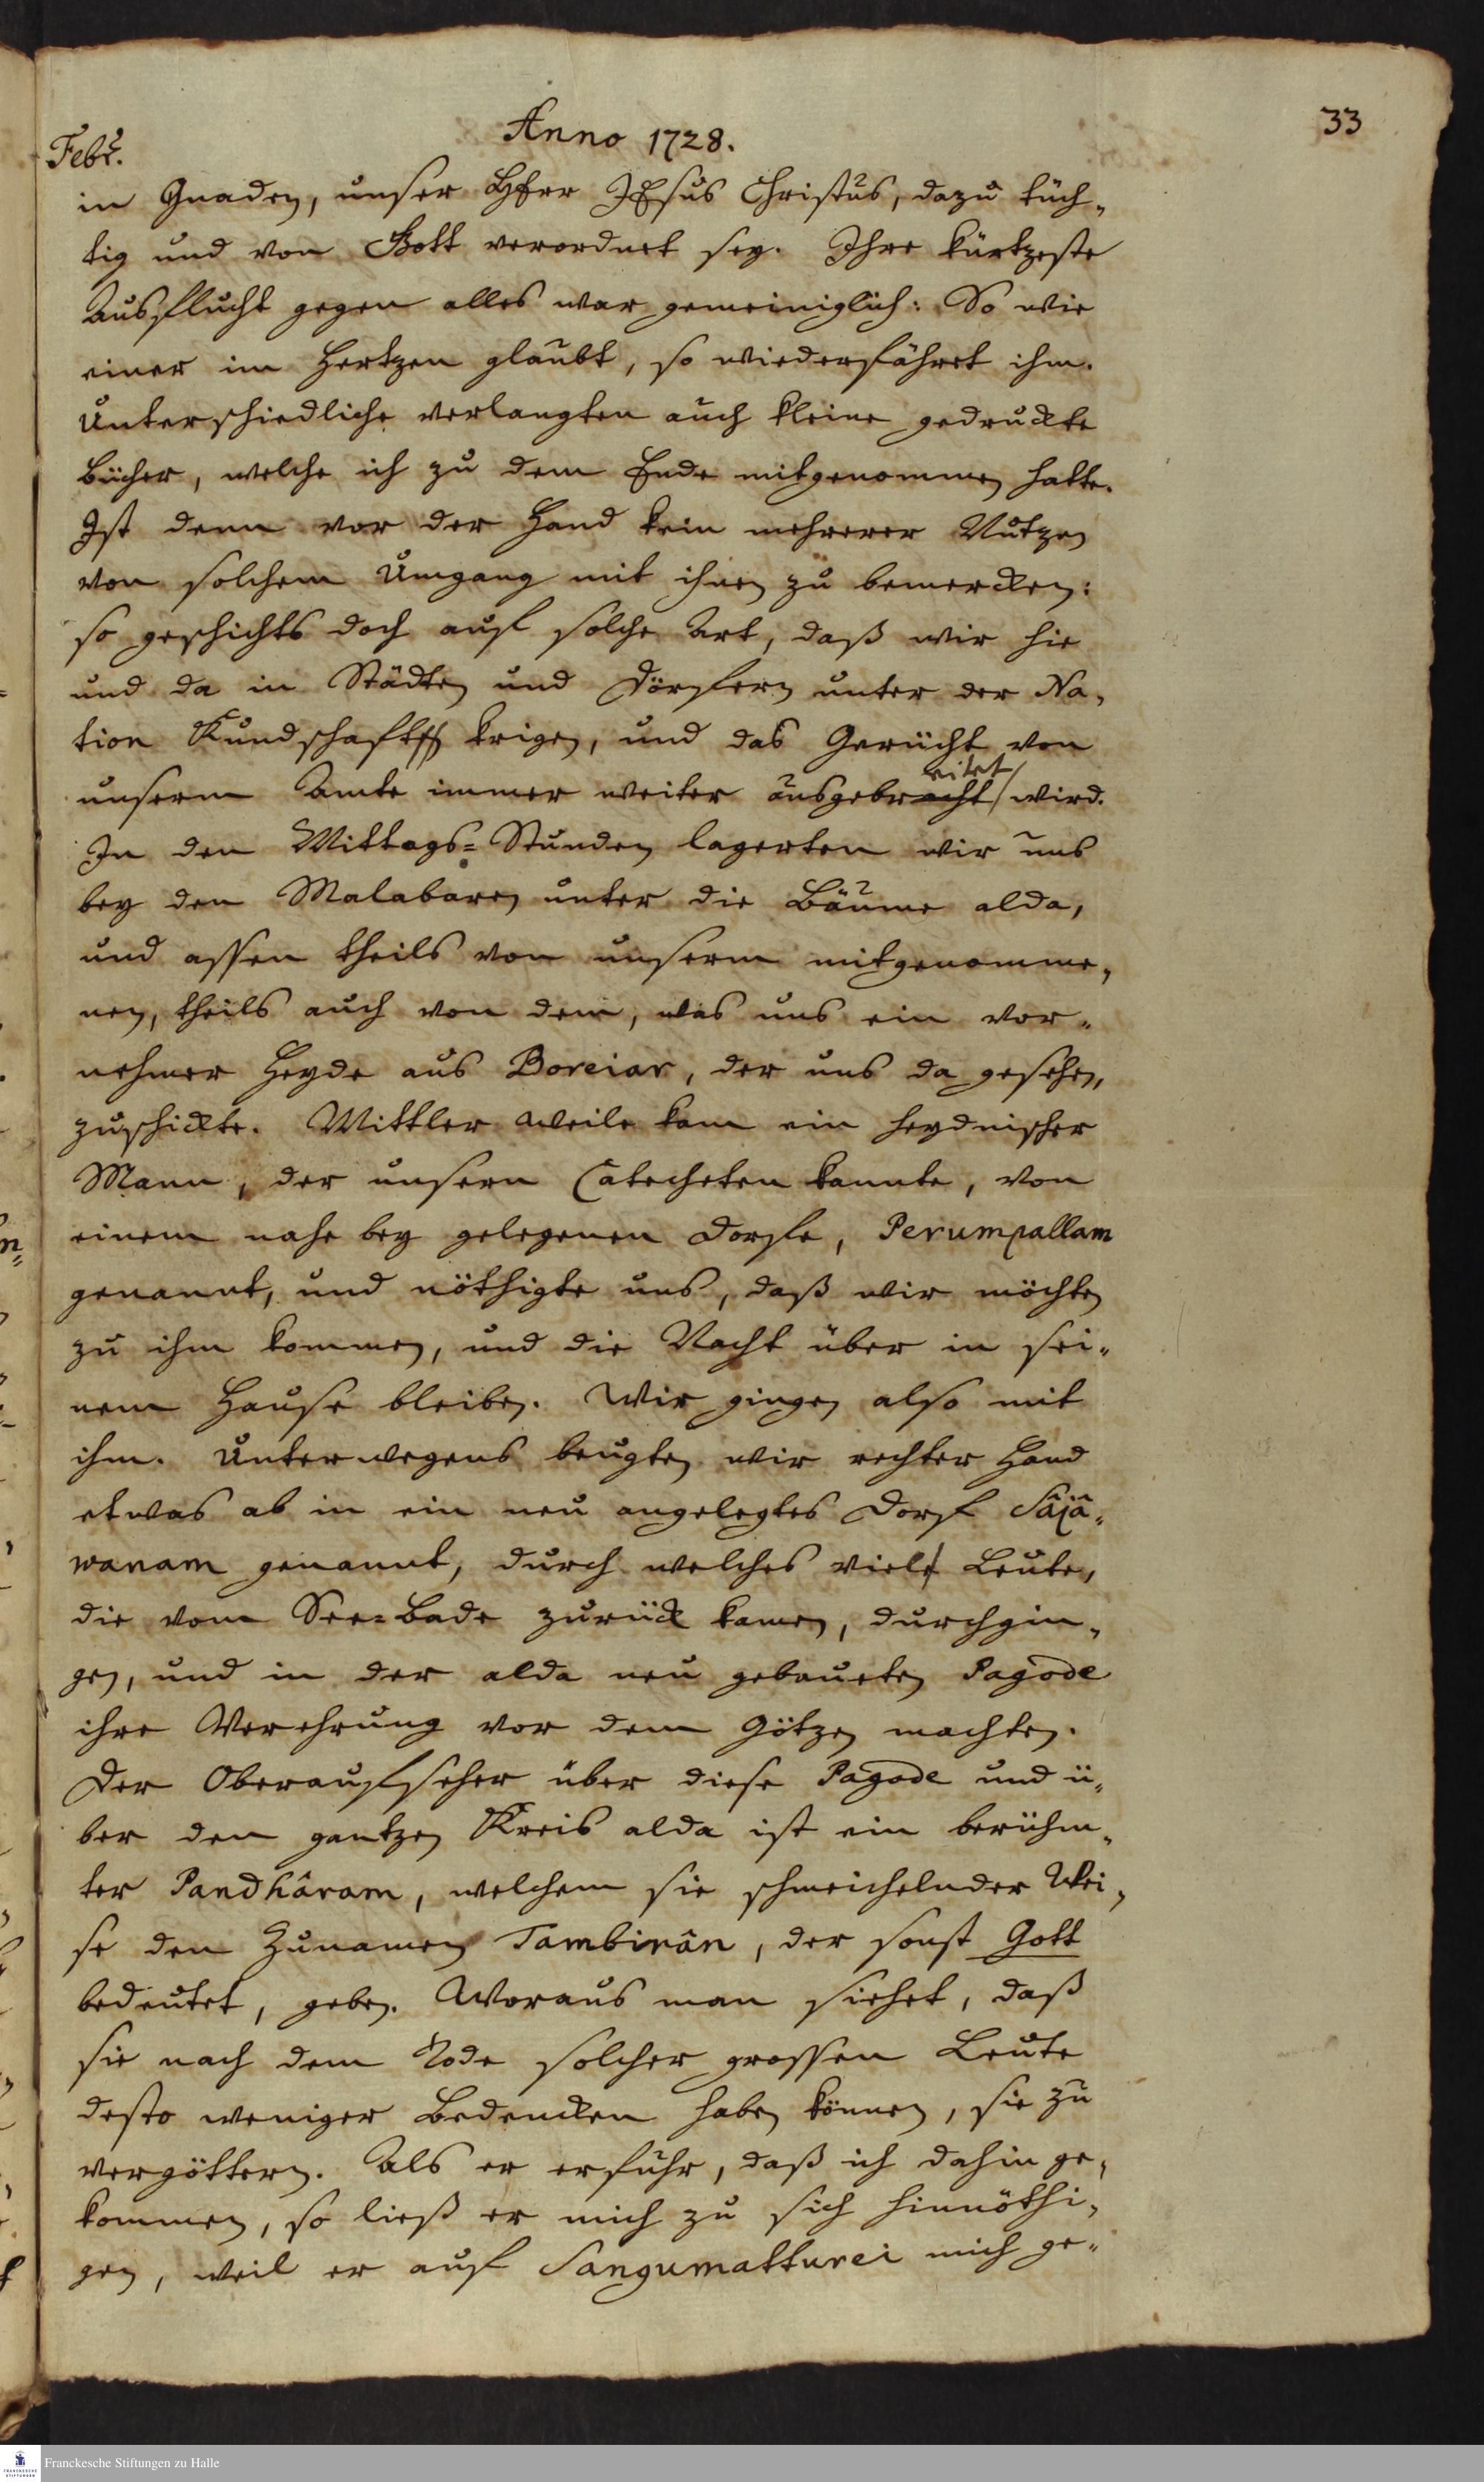 33
Anno 1728.
Febr.
in Gnaden, unser HErr JEsus Christus, dazu tüch-
tig und von Gott verordnet sey. Ihre kürtzeste
Ausflucht gegen alles war gemeiniglich: So wie
einer im Hertzen glaubt, so wiederfähret ihm.
Unterschiedliche verlangten auch kleine gedruckte
Bücher, welche ich zu dem Ende mitgenommen hatte.
Ist denn vor der Hand kein mehrerer Nutzen
von solchem Umgang mit ihnen zu bemercken:
so geschichts doch auf solche Art, daß wir hie
und da in Städten und Dörfern unter der Na-
tion Kundschafft krigen, und das Gerücht von
eitet
unserm Amte immer weiter ausgebracht wird.
In den Mittags-Stunden lagerten wir uns
bey den Malabaren unter die Bäume alda,
und assen theils von unserm mitgenomme-
nen, theils auch von dem, was uns ein vor-
nehmer Heyde aus Boreiar, der uns da gesehen,
zuschickte. Mittler Weile kam ein heydnischer
Mann, der unsern Catecheten kannte, von
einem nahe bey gelegenen Dorfe, Perumpallam
genannt, und nöthigte uns, daß wir möchten
zu ihm kommen, und die Nacht über in sei-
nem Hause bleiben. Wir gingen also mit
ihm. Unterwegens beugten wir rechter Hand
etwas ab in ein neu angelegtes Dorf Sâjâ-
wanam genannt, durch welches viele Leute,
die vom See-Bade zurück kamen, durchgin-
gen, und in der alda neu gebaueten Pagode
ihre Verehrung vor dem Götzen machten.
Der Oberaufseher über diese Pagode und ü-
ber den gantzen Kreis alda ist ein berühm-
ter Pandhâram, welchem sie schmeichelnder Wei-
se den Zunamen Tambirân, der sonst Gott
bedeutet, geben. Woraus man siehet, daß
sie nach dem Tode solcher grossen Leute
desto weniger Bedencken haben können, sie zu
vergöttern. Als er erfuhr, daß ich dahin ge-
kommen, so ließ er mich zu sich hinnöthi-
gen, weil er auf Sangumatturei mich ge-
Franckesche Stiftungen zu Halle